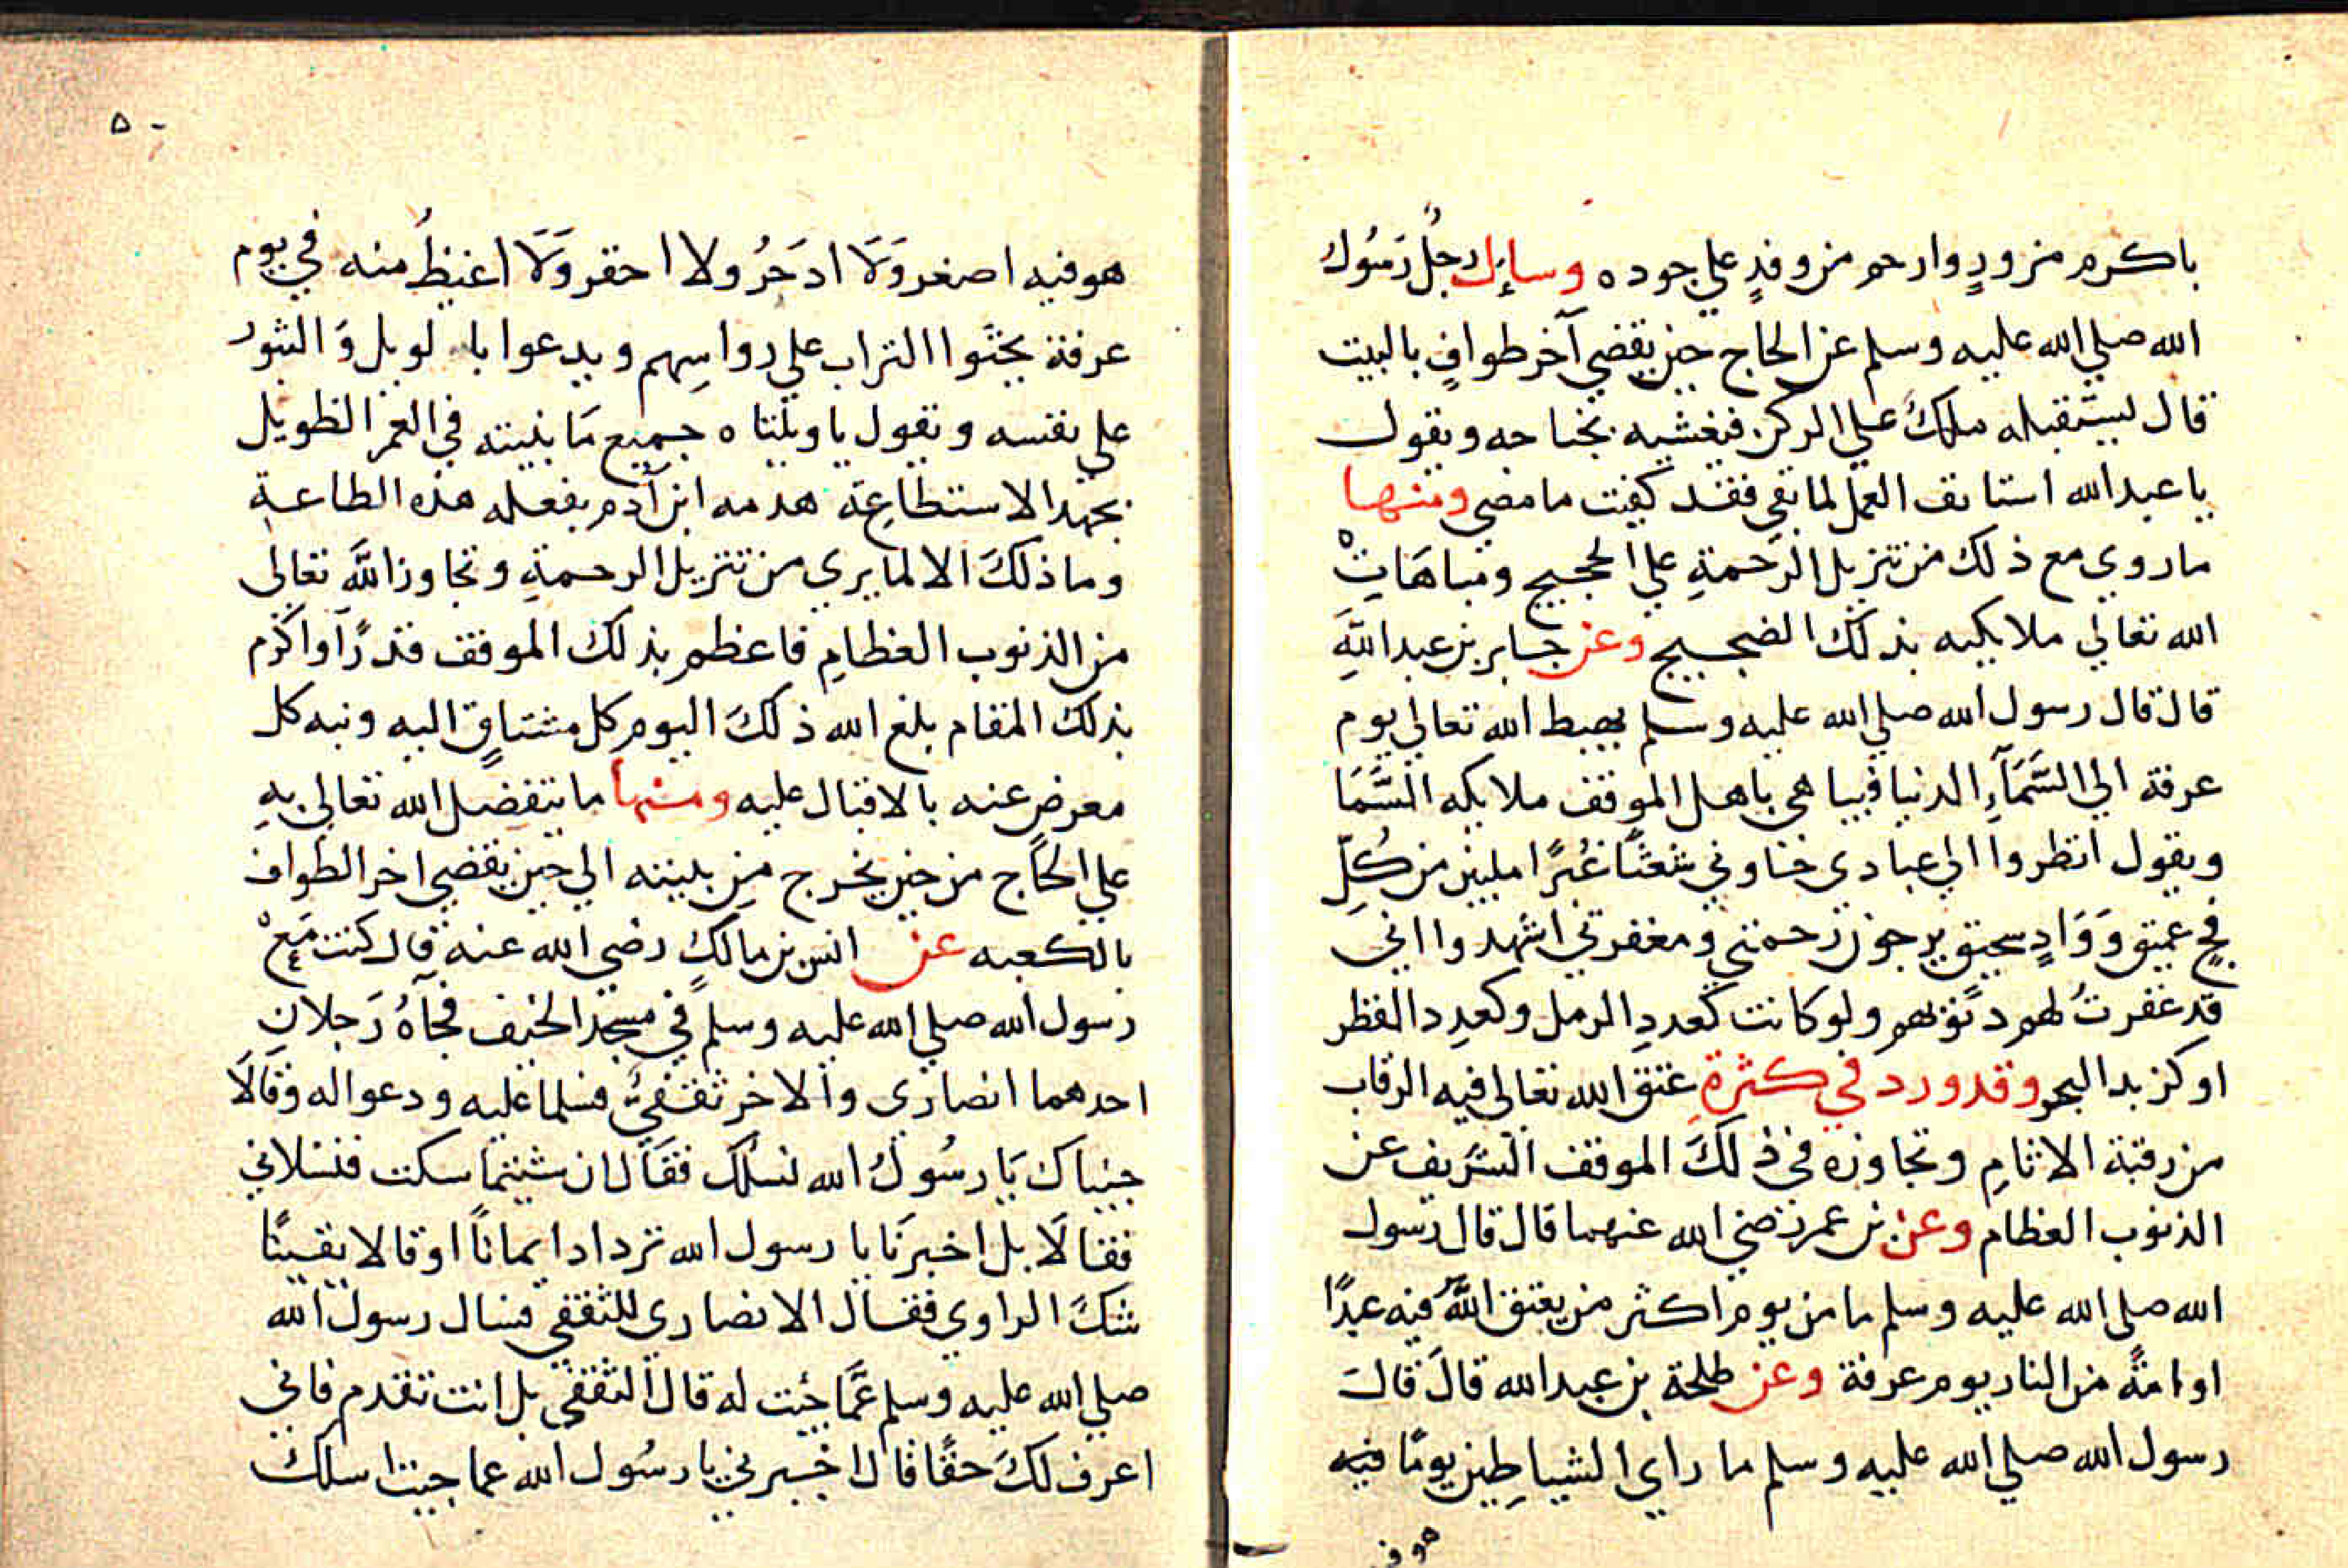 باكرم من وردٍ وارحم من وفدٍ علي جوده وسايل رجلٌ رَسُول
الله صلي الله عليه وسلم عن الحاج حين يقضي آخر طوافٍ بالبيت
قال ليستقبله ملكٌ علي الركن فيغشيه بجناحه ويقول
يا عبد الله استانف العمل لما بقي فقد كفيت ما مضي ومنها
ما روي مع ذلك من تنزيل الرَحمةِ علي الحجيج ومباهَاتِ
الله تعالي ملايكيه بذلك الضجيج وعن جابر بن عبد اللهِ
قال قال رسول الله صلي الله عليه وسلم يهبط الله تعالي يوم
عرفة الي السَّمَآءِ الدنيا فيباهي باهل الموقف ملايكه السَّمَا
ويقول انظروا الي عبادي جناوني شعثًا غُبرًا ملبين من كُلِّ
فجٍ عميق وَوَادٍ سحيق يرجون رحمتي ومغفرتي اشهدوا اني
قد غفرتُ لهم ذنوبهم ولو كانت كعددِ الرمل وكعددِ القطر
او كزبد البحر وقد ورد في كثرة عتق الله تعالي فيه الرقاب
من رقبة الاثامِ وتجاوزه في ذلكَ الموقف الشَريف عن
الذنوب العظام وعن بن عمر رَضي الله عنهما قال قال رَسول
الله صلي الله عليه وسلم ما من يوم اكثر من يعتق اللهُ فيه عبدًا
او امةً من النار يوم عرفة وعن طلحة بن عبد الله قالَ قالَ
رسول الله صلي الله عليه وسلم ما راي الشياطِين يومًا فيه
هو ف
٥
هو فيه اصغر وَلَا ادحَرُ ولا احقر وَلَا اغيظُ منه في يوم
عرفة يحثوا التراب علي رواسِهم ويدعوا بالويل وَالثبور
علي نفسه ويقول يا ويلتاه جميع مَا بنيته في العمر الطويل
بجهد الاستطاعَة هدمه ابن آدم بفعله هذه الطاعة
وما ذلكَ الا لما يري من تنزيل الرحمةِ وتجاوز اللهَ تعالي
من الذنوب العظامِ فاعظم بذلك الموقف قدرًا واكرم
بذلكَ المقام بلغ الله ذلكَ اليوم كل مشتاقٍ اليه ونبه كل
معرض عنه بالاقبال عليه ومنها ما يتفضل الله تعالي بهِ
علي الحاج من حين يخرج مِن بيته الي حين يقضي اخر الطواف
بالكعبه عن انس بن مالكٍ رضي الله عنه قال كنت مَعْ
رسول الله صلي الله عليه وسلم في مسجد الخيف فجآهُ رَجلانِ
احدهما انصاري والاخر ثقفيٌ فسلما عليه ودعوا له وَقالَا
جيناك يَا رسُولُ الله نسلك فقالَ ان شيتما سكت فتسلاني
فقالَا بل اخبرنَا يا رسول الله نزداد ايمانًا او قالا يقينًا
شكَ الراوي فقال الانصاري للثقفي فسال رسول الله
صلي الله عليه وسلم عَمَّا جئت له قال الثقفي بل انت تقدم فاني
اعرف لكَ حقًا قال اخبرني يا رسُول الله عما جيت اسلك